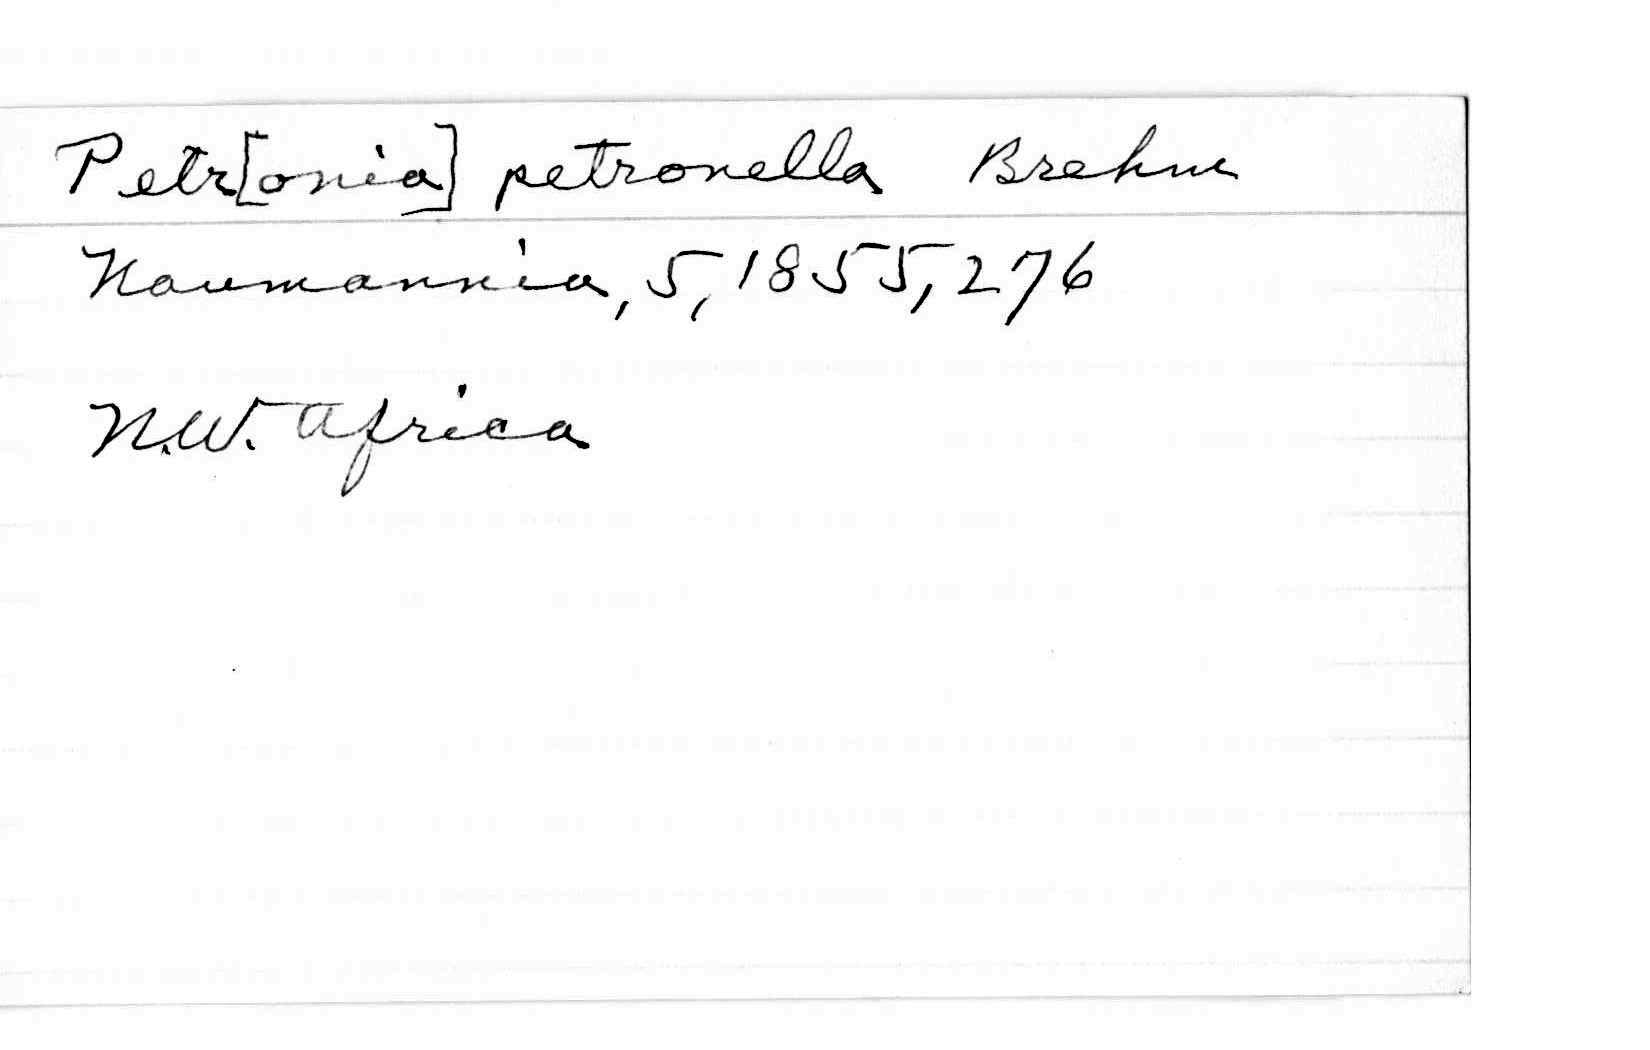 Petr[onia] petronella Brehm
Naumannia, 5, 1855, 276
N.W. Africa